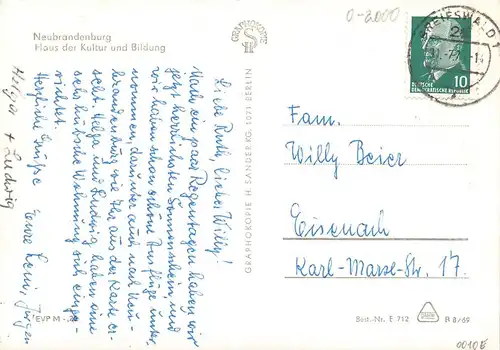 Neubrandenburg
Haus der Kultur und Bildung
Liebe Ruth, lieber Willy!
Nach ein paar Regentagen haben wir
jetzt herrlichsten Sonnenschein, und
wir haben schon schöne Ausflüge unter-
nommen, darunter auch nach Neu-
brandenburg wie Ihr aus der Karte er-
seht. Helga und Ludwig haben eine
sehr hübsche Wohnung sich einge-
richtet.
Herzliche Grüße Eure Leni, Jürgen
Helga + Ludwig
EVP M
GRAPHOKOPIE
H S
GRAPHOKOPIE H. SANDER KG. 1071 BERLIN
0-2000
GREIFSWALD 1
10
DEUTSCHE
DEMOKRATISCHE REPUBLIK
Fam.
Willy Beier
Eisenach
Karl-Marx-Str. 17.
Best.-Nr. E 712
B 8/69
0010E